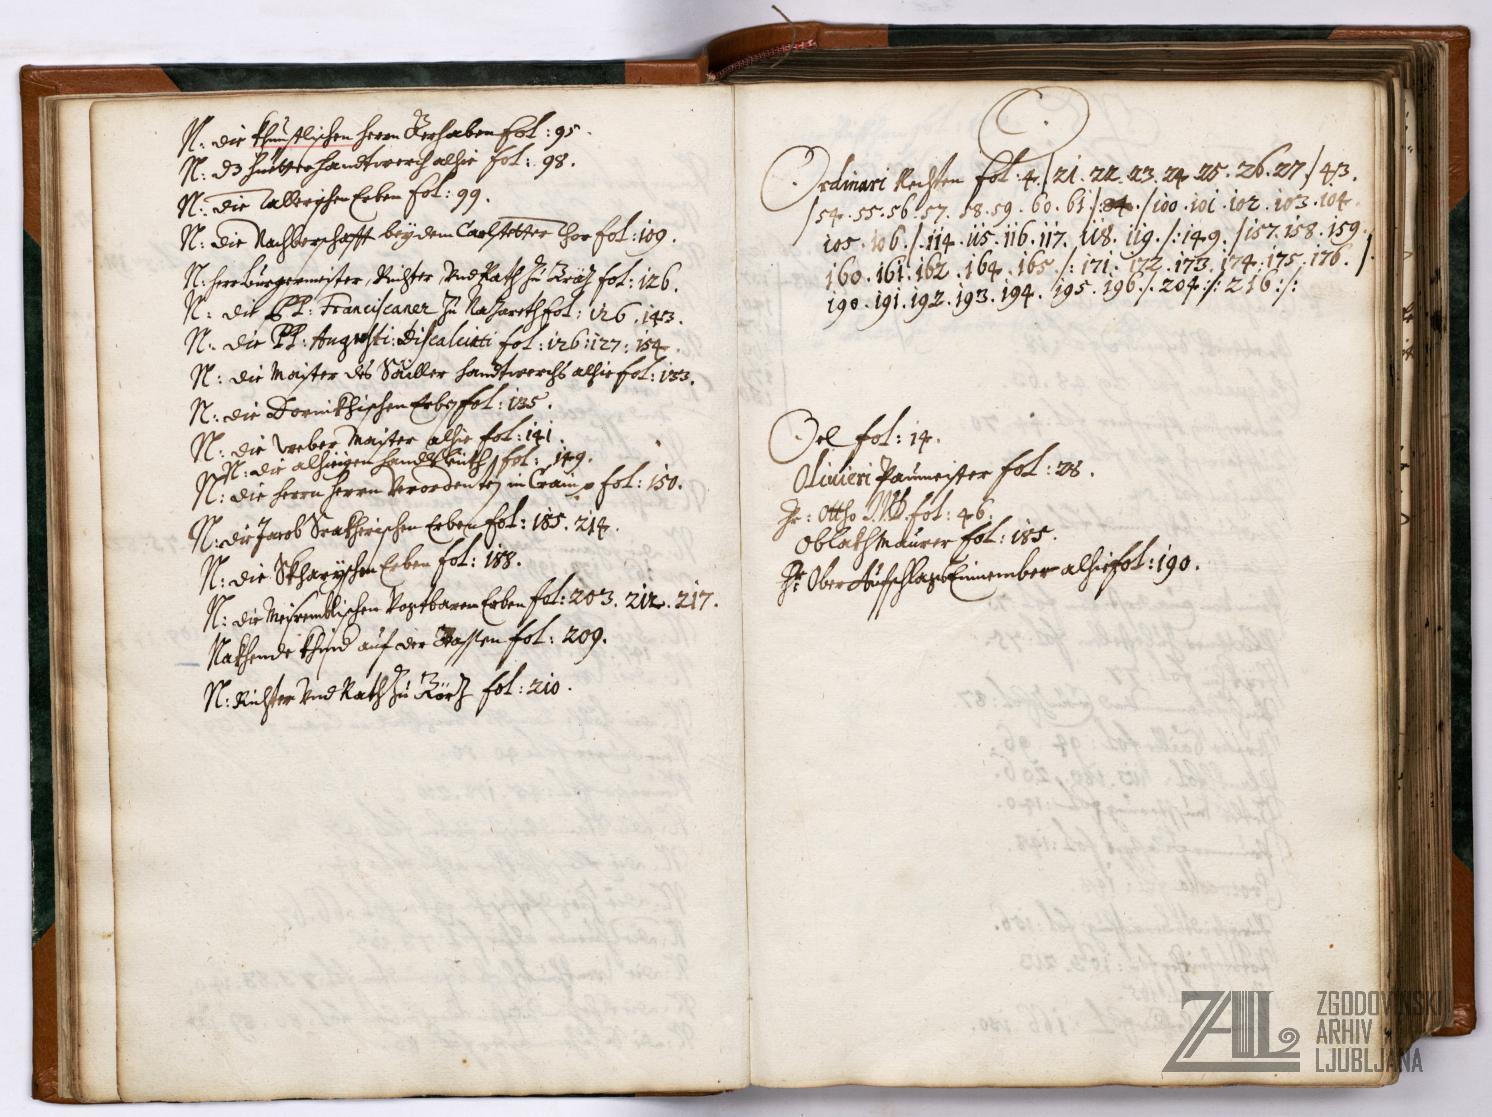 N: die khunstlischen herrn Gerhaben fol: 95.
N: dz huetter handtwerch alhie fol: 98.
N: die Tallerischen Erben fol: 99.
N: die Nachberschafft bey dem Carlstetter Thor fol: 109.
N: herr Burgermeister, Richter Und Rath zu fol: 126.
N: die PP: Franciscaner zu Nazareth fol: 126. 143.
N: die PP: Augusti: Discalciati fol: 126: 127: 154.
N: die Maister des Sailler handtwerchs alhie fol: 133.
N: die Dornikhischen Erben fol: 135.
N: die Weber Maister alhie fol: 141.
N: die alhieigen handtsleuth fol: 149.
N: die herrn herrn Verordenten in Crain fol: 150.
N: die Jacob Erben fol: 185. 214.
N: die Erben fol: 188.
N: die Erben fol: 203. 212. 217.
Nakhende khind auf der Gassen fol: 209.
N: Richter Und Rath zu fol: 210.
O
Ordinari Rechten fol: 4. / 21. 22. 23. 24. 25. 26. 27 / 43.
/ 54. 55. 56. 57. 58. 59. 60. 61 / / 100. 101. 102. 103. 104.
105. 106. /. 114. 115. 116. 117. 118. 119. /: 149. / 157. 158. 159.
160. 161. 162. 164. 165. /: 171. 172. 173. 174. 175. 176. /.
190. 191. 192. 193. 194. 195. 196. /. 204. /: 216. /:
Oel fol: 14.
Olivieri Paumeister fol: 28.
Hr: Ottho fol: 46.
Oblakh Maurer fol: 185.
Hr: Ober Aufschlags Einnember alhie fol: 190.
ZAL ZGODOVINSKI
ARHIV
LJUBLJANA